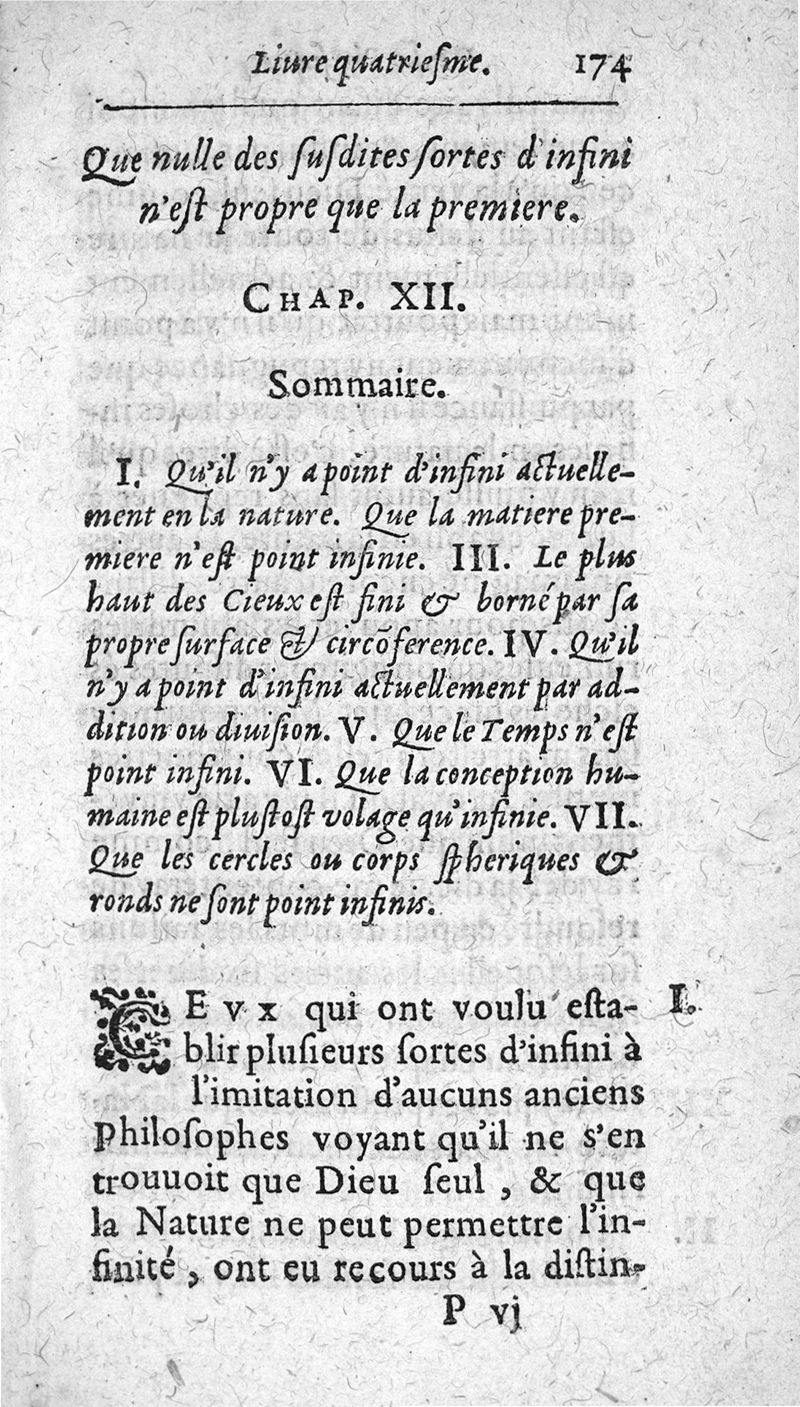 Liure quatrieſme. 174
Que nulle des ſuſdites ſortes d'infini
n'eſt propre que la premiere.
CHAP. XII.
Sommaire.
I. Qu'il n'y a point d'infini actuelle-
ment en la nature. Que la matiere pre-
miere n'eſt point infinie. III. Le plus
haut des Cieux eſt fini & borné par ſa
propre ſurface & circõference. IV. Qu'il
n'y a point d'infini actuellement par ad-
dition ou diuiſion. V. Que le Temps n'eſt
point infini. VI. Que la conception hu-
maine eſt pluſtoſt volage qu'infinie. VII.
Que les cercles ou corps ſpheriques &
ronds ne ſont point infinis.
CEVX qui ont voulu eſta- I.
blir pluſieurs ſortes d'infini à
l'imitation d'aucuns anciens
Philoſophes voyant qu'il ne s'en
trouuoit que Dieu ſeul, & que
la Nature ne peut permettre l'in-
finité, ont eu recours à la diſtin-
P vj